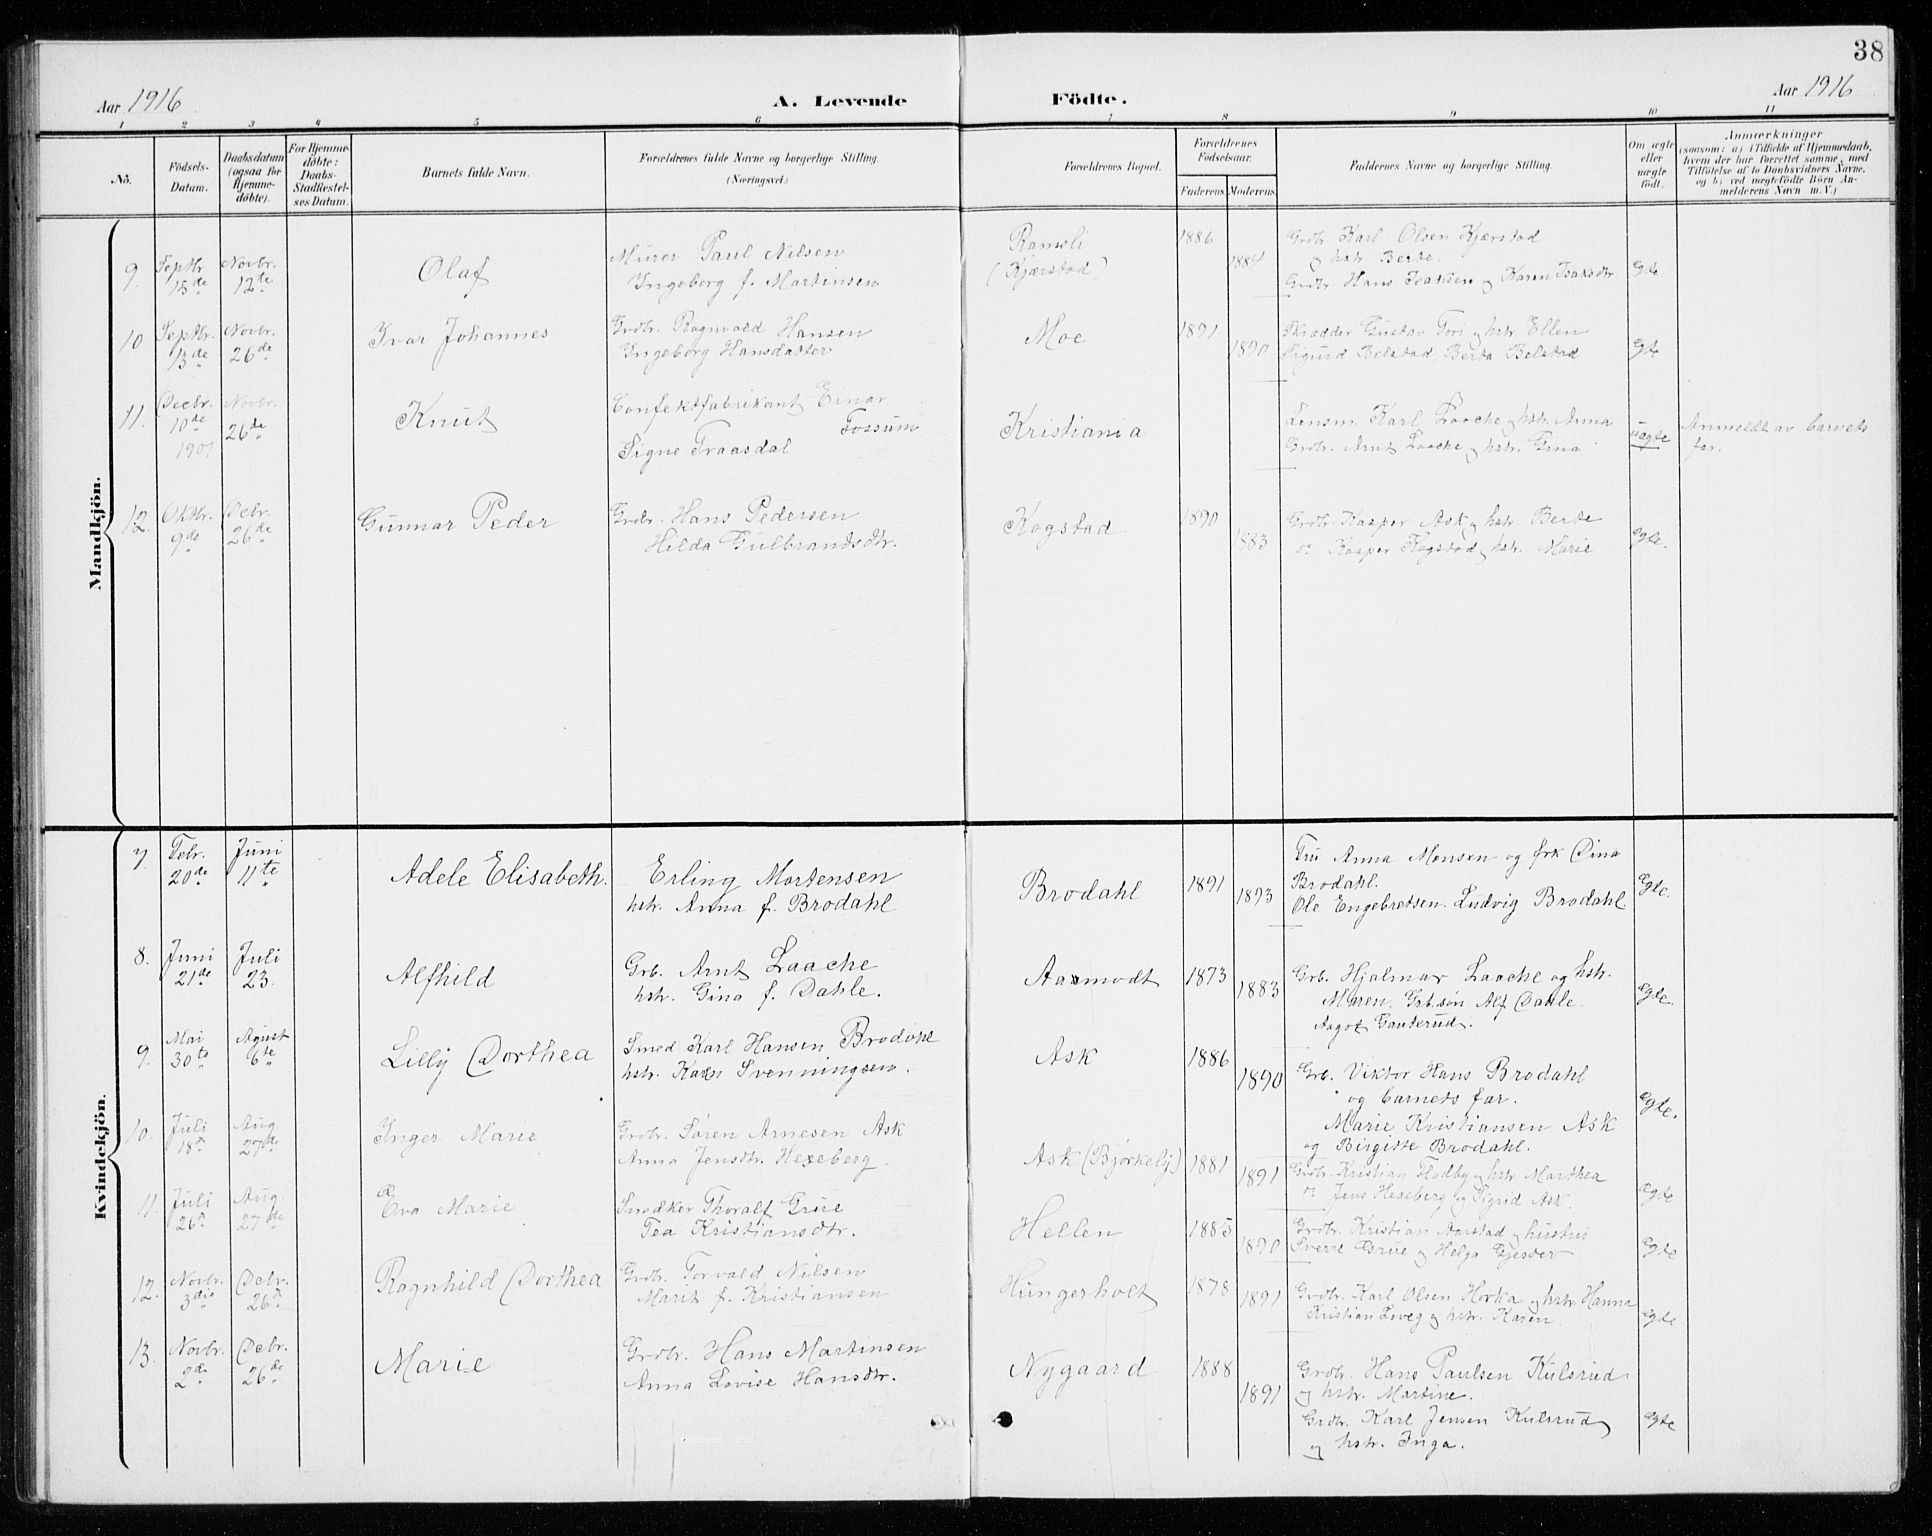 38
Aar 1916
A. Levende Födte.
Aar 1916
1 2 3 4 5 6 7 8 9 10 11
No.
Födsels-
Datum.
Daabsdatum
(ogsaa for
Hjemme-
döbte).
For Hjemme-
döbte:
Daabs-
Stadfæstel-
ses Datum.
Barnets fulde Navn.
Forældrenes fulde Navne og borgerlige Stilling.
(Næringsvei.)
Forældrenes Bopæl.
Forældrenes
Födselsaar.
Faderens. Moderens.
Faddernes Navne og borgerlige Stilling.
Om ægte
eller
uægte
födt.
Anmærkninger
(saasom: a) i Tilfælde af Hjemmedaab,
hvem der har forrettet samme, med
Tilföielse af to Daabsvidners Navne,
og b) ved uægtefödte Börn An-
melderens Navn m. V.)
Mandkjön.
9. Septbr. 15de Novbr. 12te
Olaf
Murer Paul Nilsen
Ingeborg f. Martinsen
Ramsli
(Kjærstad)
1886 1884
Grdbr. Karl Olsen Kjærstad
og hstr. Berte.
Grdbr. Hans Isaksen og Karen Isaksdtr.
Egte
10 Septbr. 13de Novbr. 26de
Ivar Johannes
Grdbr. Ragnvald Hansen
Ingeborg Hansdatter
Moe
1891 1890
Skrædder Gustav Tori og hstr. Ellen
Sigurd Belstad, Berta Belstad
Egte
11. Decbr. 10de 1907 Novbr. 26de
Knut
Confektfabrikant Einar
Fossum
Signe Traasdal
Kristiania
Lensm. Karl Laache og hstr. Anna
Grdbr. Arnt Laache og hstr. Gina
uægte
Anmeldt av barnets
far.
12. Oktbr. 9de Decbr. 26de
Gunnar Peder
Grdbr. Hans Pedersen
Hilda Gulbrandsdtr.
Kogstad
1890 1883
Grdbr. Kasper Ask og hstr. Berte
" Kasper Kogstad og hstr. Marie
Egte.
Kvindekjön.
7. Febr. 20de Juni 11te
Adele Elisabeth.
Erling Mortensen
hstr. Anna f. Brodahl
Brodahl
1891 1893
Fru Anna Monsen og frk Dina
Brodahl.
Ole Engebretsen. Ludvig Brodahl.
Egte.
8. Juni 21de Juli 23.
Alfhild
Grb. Arnt Laache
hstr. Gina f. Dahle.
Aasmodt
1873 1883
Grb. Hjalmar Laache og hstr.
Maren. Grb.søn Alf Dahle.
Aagot Gauterud.
Egte.
9. Mai 30te August 6te
Lilly Dorthea
Smed Karl Hansen Brodahl
hstr. Karen Svenningsen.
Ask
1886 1890
Grb. Viktor Hans Brodahl
og barnets far.
Marie Kristiansen Ask
og Birgitte Brodahl.
Egte.
10. Juli 18de Aug. 27de
Inger Marie
Grdbr. Søren Arnesen Ask
Anna Jensdtr. Hexeberg.
Ask (Bjørkely.)
1881 1891
Grdbr. Kristian Flodby og hstr. Marthea
" Jens Hexeberg og Sigrid Ask.
Egte
11. Juli 26de Aug. 27de
Eva Marie
Snedker Thoralf Grue
Tea Kristiansdtr.
Hellen
1885 1890
Grdbr. Kristian Aarstad og hustru
Sverre Grue og Helga Gjesder
Egte
12. Novbr. 3die Decbr. 26de
Ragnhild Dorthea
Grdbr. Torvald Nilsen
Marit f. Kristiansen
Hungerholt
1878 1891
Grdbr. Karl Olsen Horka og hstr. Hanna
Kristian Loveg og hstr. Karen
Egte
13. Novbr. 2de Decbr. 26de
Marie
Grdbr. Hans Martinsen
Anna Lovise Hansdtr.
Nygaard
1888 1891
Grdbr. Hans Paulsen Kulsrud
og hstr. Martine.
Grdbr. Karl Jensen Kulsrud
og hstr. Inga.
Egte